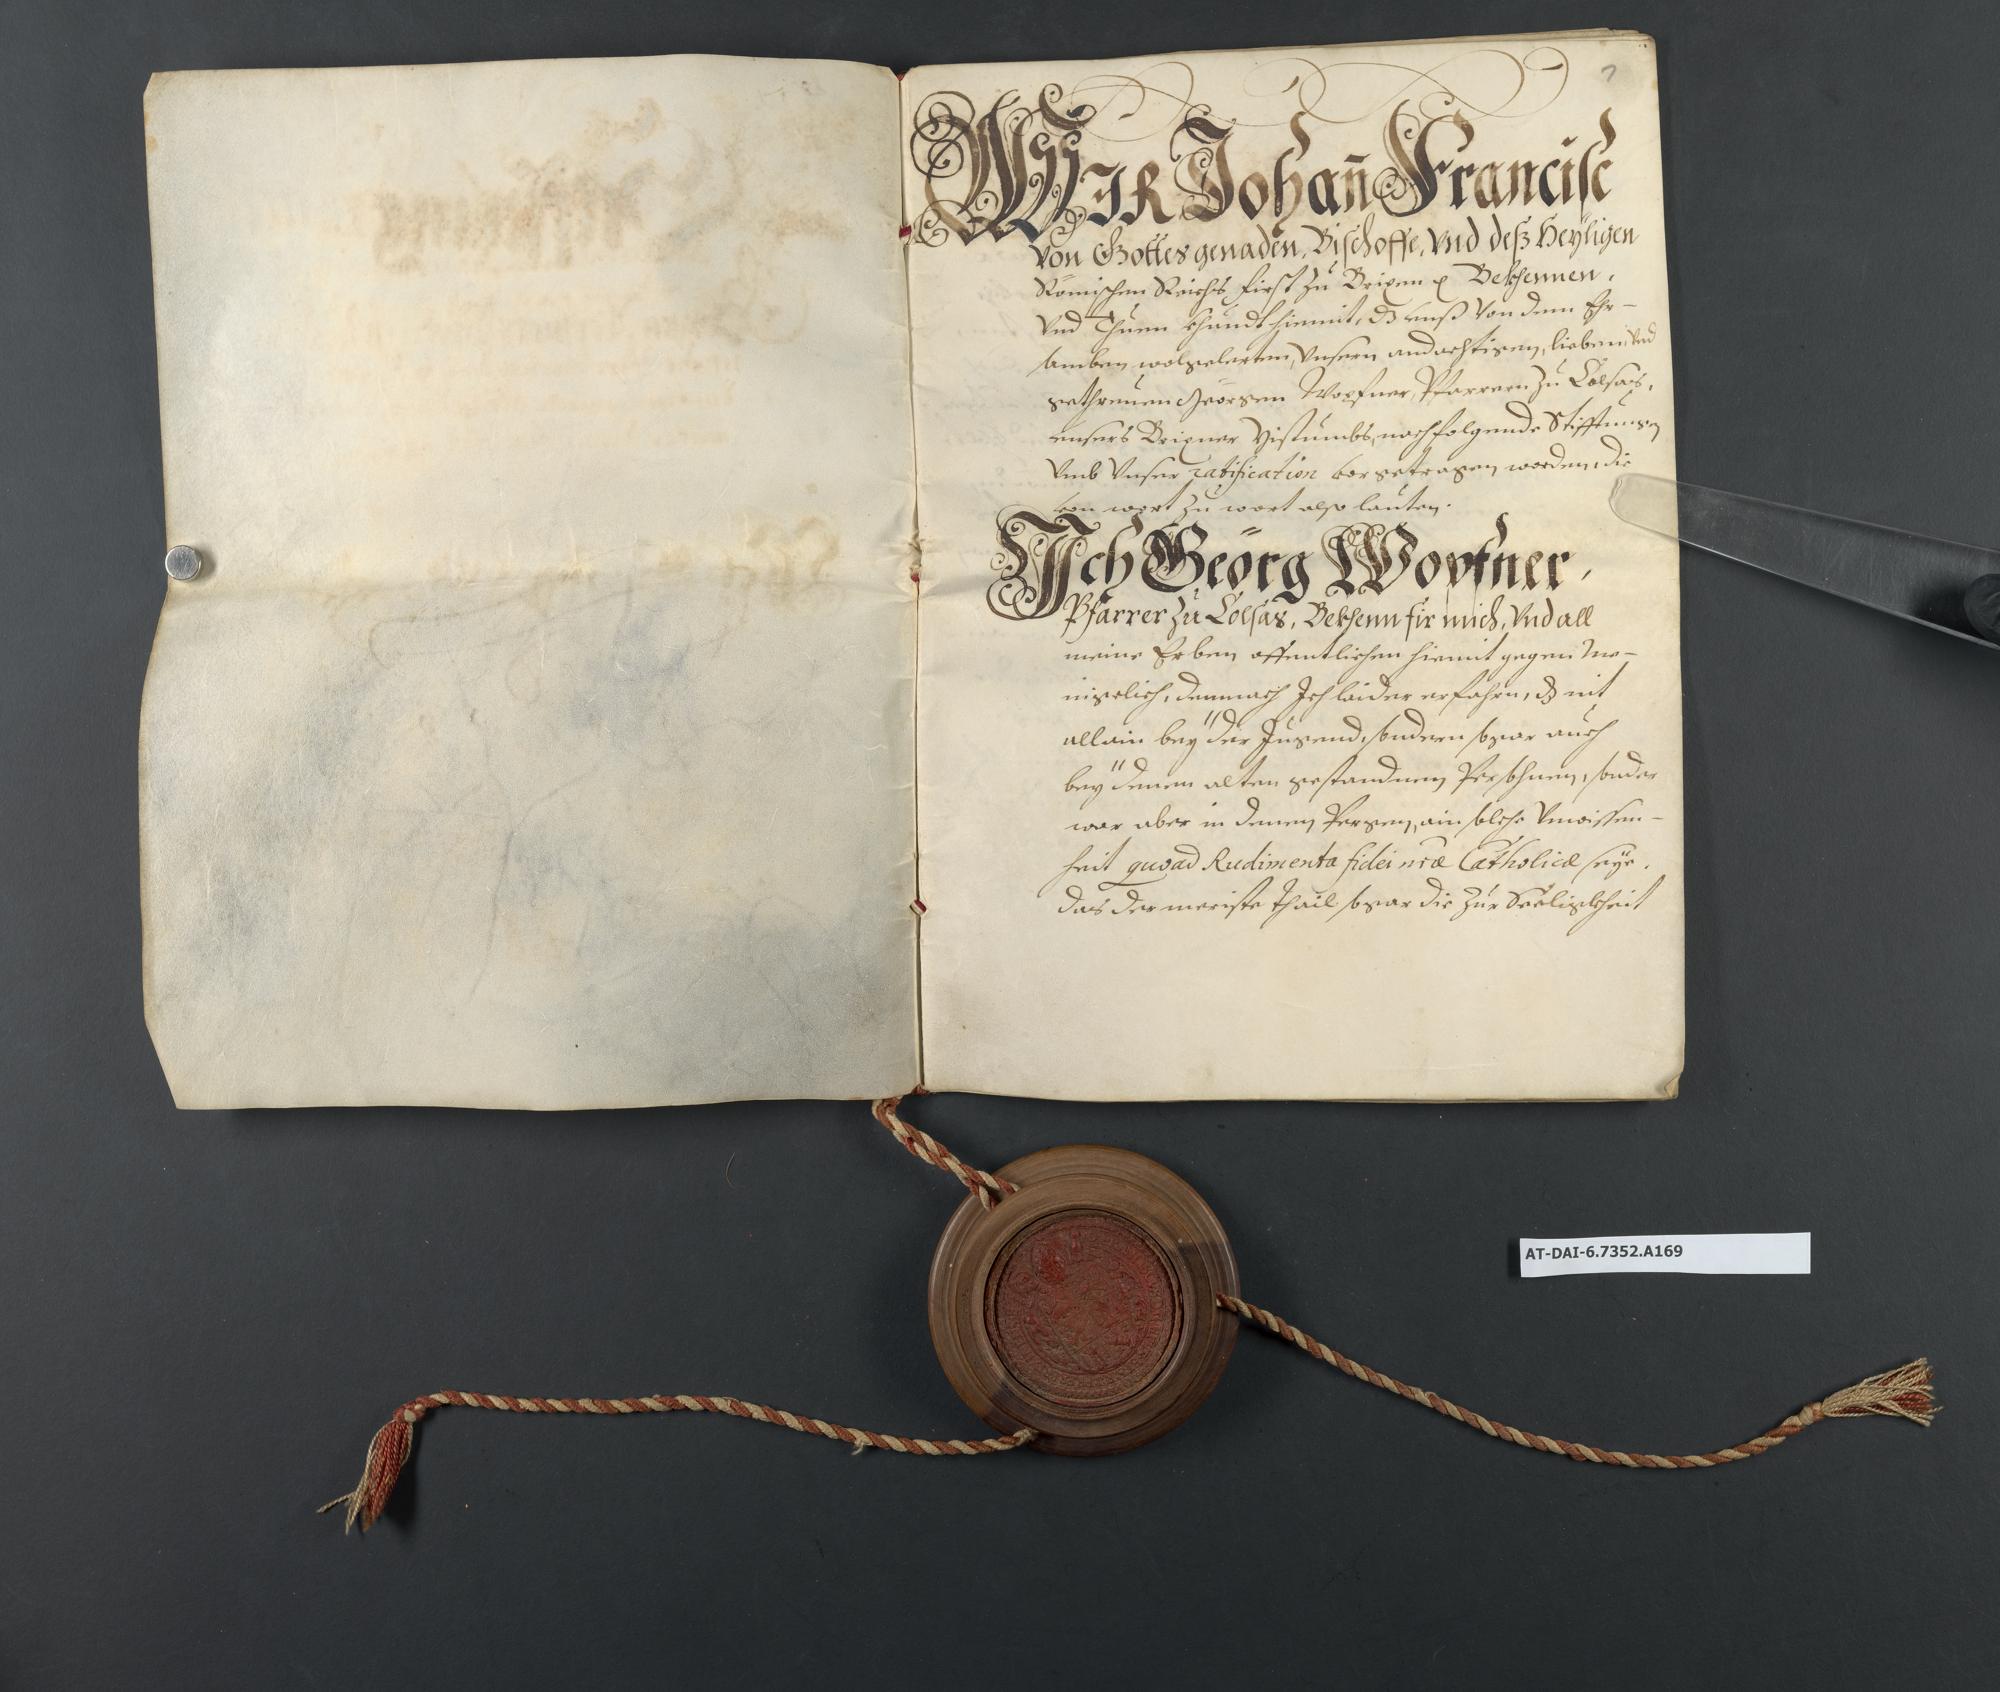 7
WIR Johan̄ Francisc
von Gottes genaden, Bischoffe, Vnd deß Heyligen
Römischen Reichs first zu Brixen ꝛc Bekhennen,
Vnd Thuen khundt hiemit, dz unß Von dem Ehr-
samben wolgelerten, Vnserm andechtigen, lieben, Vnd
gethreuen Georgen Wopfner, Pfarrern zu Colsas,
unsers Brixner Bistumbs, nachfolgende Stifftungen
Vmb Vnser ratification vorgetragen worden, die
von wort zu wort also lauten.
Ich Geörg Wopfner,
Pfarrer zu Colsas, Bekhenn fir mich, Vnd all
meine Erben offentlichen hiemit gegen Me-
nigelich, demnach Ich laider erfahrn, dz nit
allain bey der Jugend, sondern sogar auch
bey denen alten gestandnen Persohnen, sonder
war aber in denen Pergen, ain solche Vnwissen-
heit quoad Rudimenta fidei nr̄æ Catholicæ seye,
das der meriste Thail sogar die zur Seeligkheit
AT-DAI-6.7352.A169